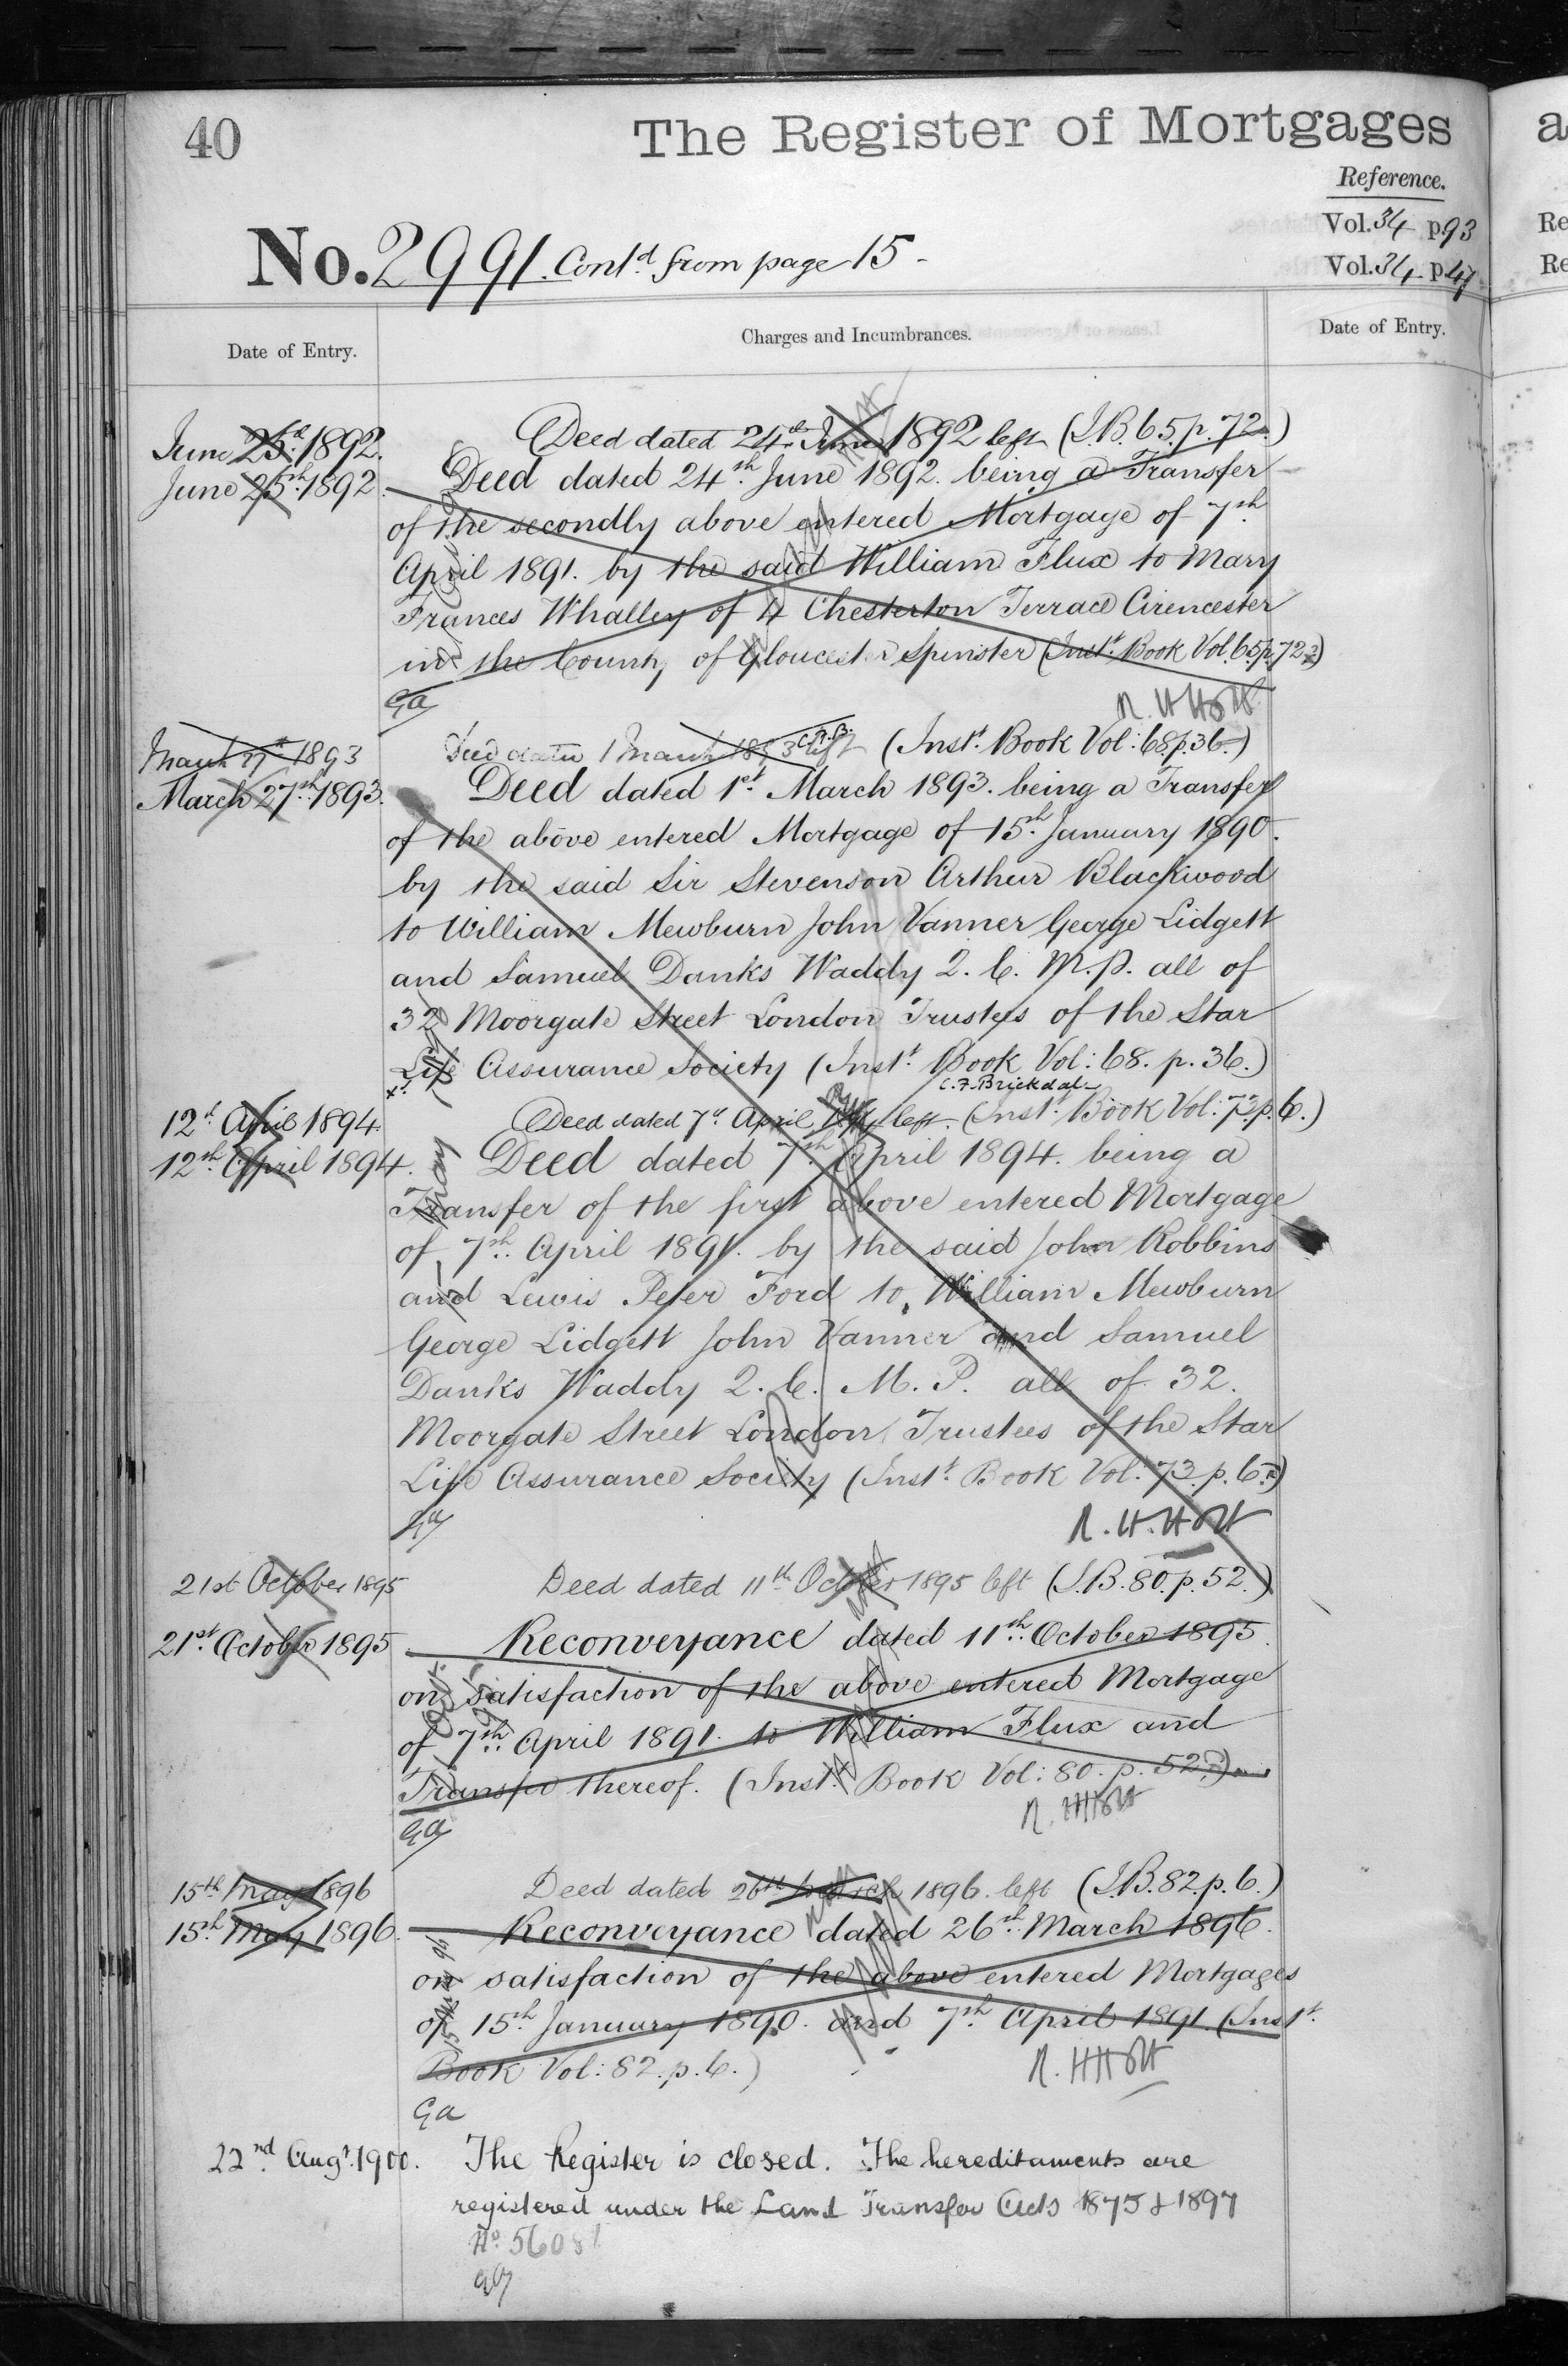 40
The Register of Mortgages
Reference.
Vol. 34 p 93
Vol. 34 p 47
No. 2991. Contd. from page 15 -
Date of Entry.
Charges and Incumbrances.
Date of Entry.
June 25th. 1892.
Deed dated 24th. June 1892 left (I.B. 65. p. 72.)
June 25th. 1892.
Deed dated 24th. June 1892. being a Transfer
of the secondly above entered Mortgage of 7th
April 1891. by the said William Flux to Mary
Frances Whalley of 4 Chesterton Terrace Cirencester
in the County of Gloucester Spinster (Inst. Book Vol. 65. p. 72.)
GA
R. H. Holt
March 27th 1893
Deed dated 1 March 1893 left (Inst. Book Vol: 68. p. 36.)
March 27th. 1893.
Deed dated 1st. March 1893. being a Transfer
of the above entered Mortgage of 15th. January 1890.
by the said Sir Stevenson Arthur Blackwood
to William Mewburn John Vanner George Lidgett
and Samuel Danks Waddy Q. C. M. P. all of
32 Moorgate Street London Trustees of the Star
Life Assurance Society (Inst. Book Vol: 68. p. 36.)
C. F. Brickdale
12th April 1894.
Deed dated 7th April 1894 left. (Inst. Book Vol: 73. p. 6.)
12th. April 1894.
Deed dated 7th. April 1894. being a
Transfer of the first above entered Mortgage
of 7th. April 1891. by the said John Robbins
and Lewis Peter Ford to William Mewburn
George Lidgett John Vanner and Samuel
Danks Waddy Q. C. M. P. all of 32.
Moorgate Street London Trustees of the Star
Life Assurance Society (Inst. Book Vol: 73. p. 6.)
R. H. Holt
21st October 1895
Deed dated 11th October 1895 left (I.B. 80. p. 52.)
21st. October 1895
Reconveyance dated 11th. October 1895.
on satisfaction of the above entered Mortgage
of 7th. April 1891. to William Flux and
Transfer thereof. (Inst. Book Vol: 80. p. 52.)
R. H Holt
GA
15th May 1896
Deed dated 26th March 1896. left (I.B. 82. p. 6.)
15th. May 1896.
Reconveyance dated 26th. March 1896.
on satisfaction of the above entered Mortgages
of 15th. January 1890. and 7th. April 1891. (Inst.
Book Vol: 82. p. 6.)
R. H Holt
GA
22nd. Augt. 1900.
The Register is closed. The hereditaments are
registered under the Land Transfer Acts 1875 & 1897
No. 56081